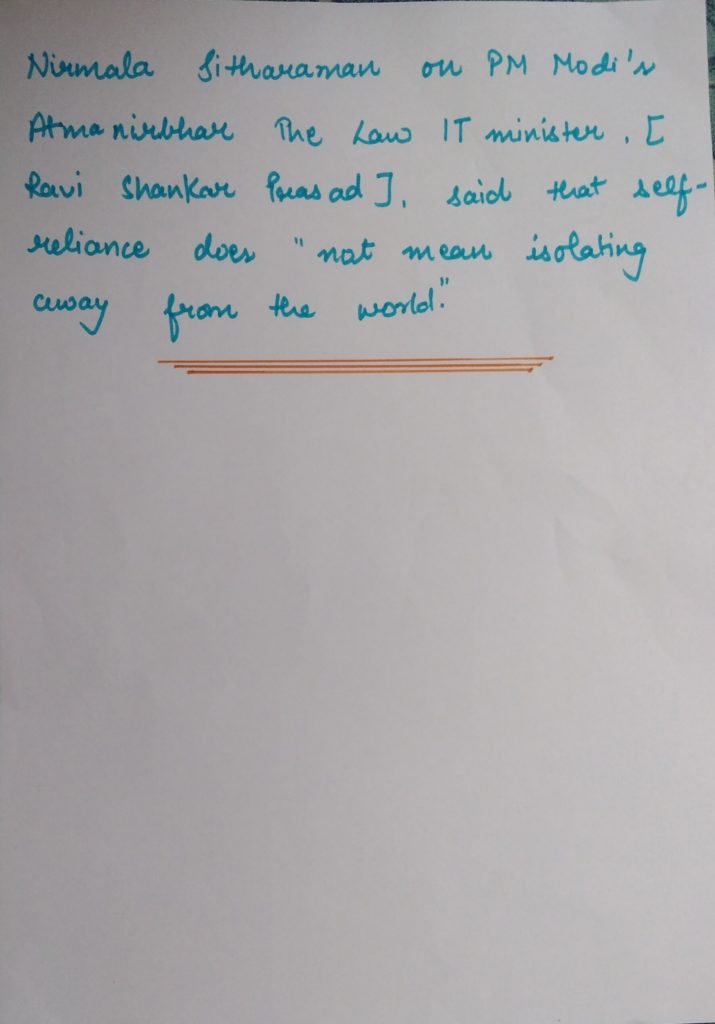 Nirmala Sitharaman on PM Modi's
Atmanirbhar The Law IT minister. [
Ravi Shankar Prasad], said that self-
reliance does "not mean isolating
away from the world."